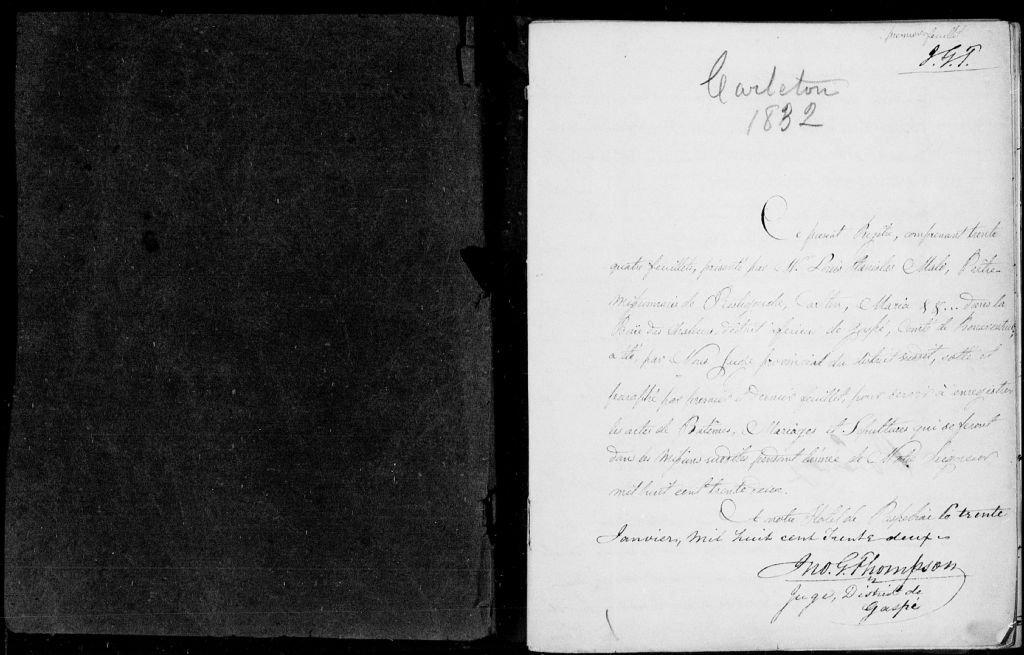 premier feuillet
J. G. T.
Carleton
1832
Ce présent Registre, comprenant trente
quatre feuillets, présenté par Mr. Louis Stanislas Malo, Prêtre
Missionnaire de Ristigouche, Carleton, Maria &&... dans la
Baie des Chaleurs, district inférieur de Gaspé, Comté de Bonaventure,
a été, par Nous Juge provincial du district susdit, cotté et
paraphé par premier et dernier feuillet, pour servir à enregistrer
les actes de Batêmes, Mariages et Sépultures qui se feront
dans les Missions susdites pendant l'année de Notre Seigneur
mil huit cent trente
A notre Hotel de le trente
Janvier, mil huit cent trente deux
Jno. G. Thompson
Juge, District de
Gaspé